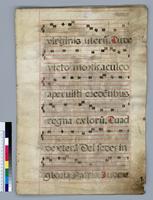 virginis uterū. Tu de
victo mortis aculeo
aperuisti credentibus
regna celorū. Tu ad
dexterā Dei sedes in
gloria Patris.